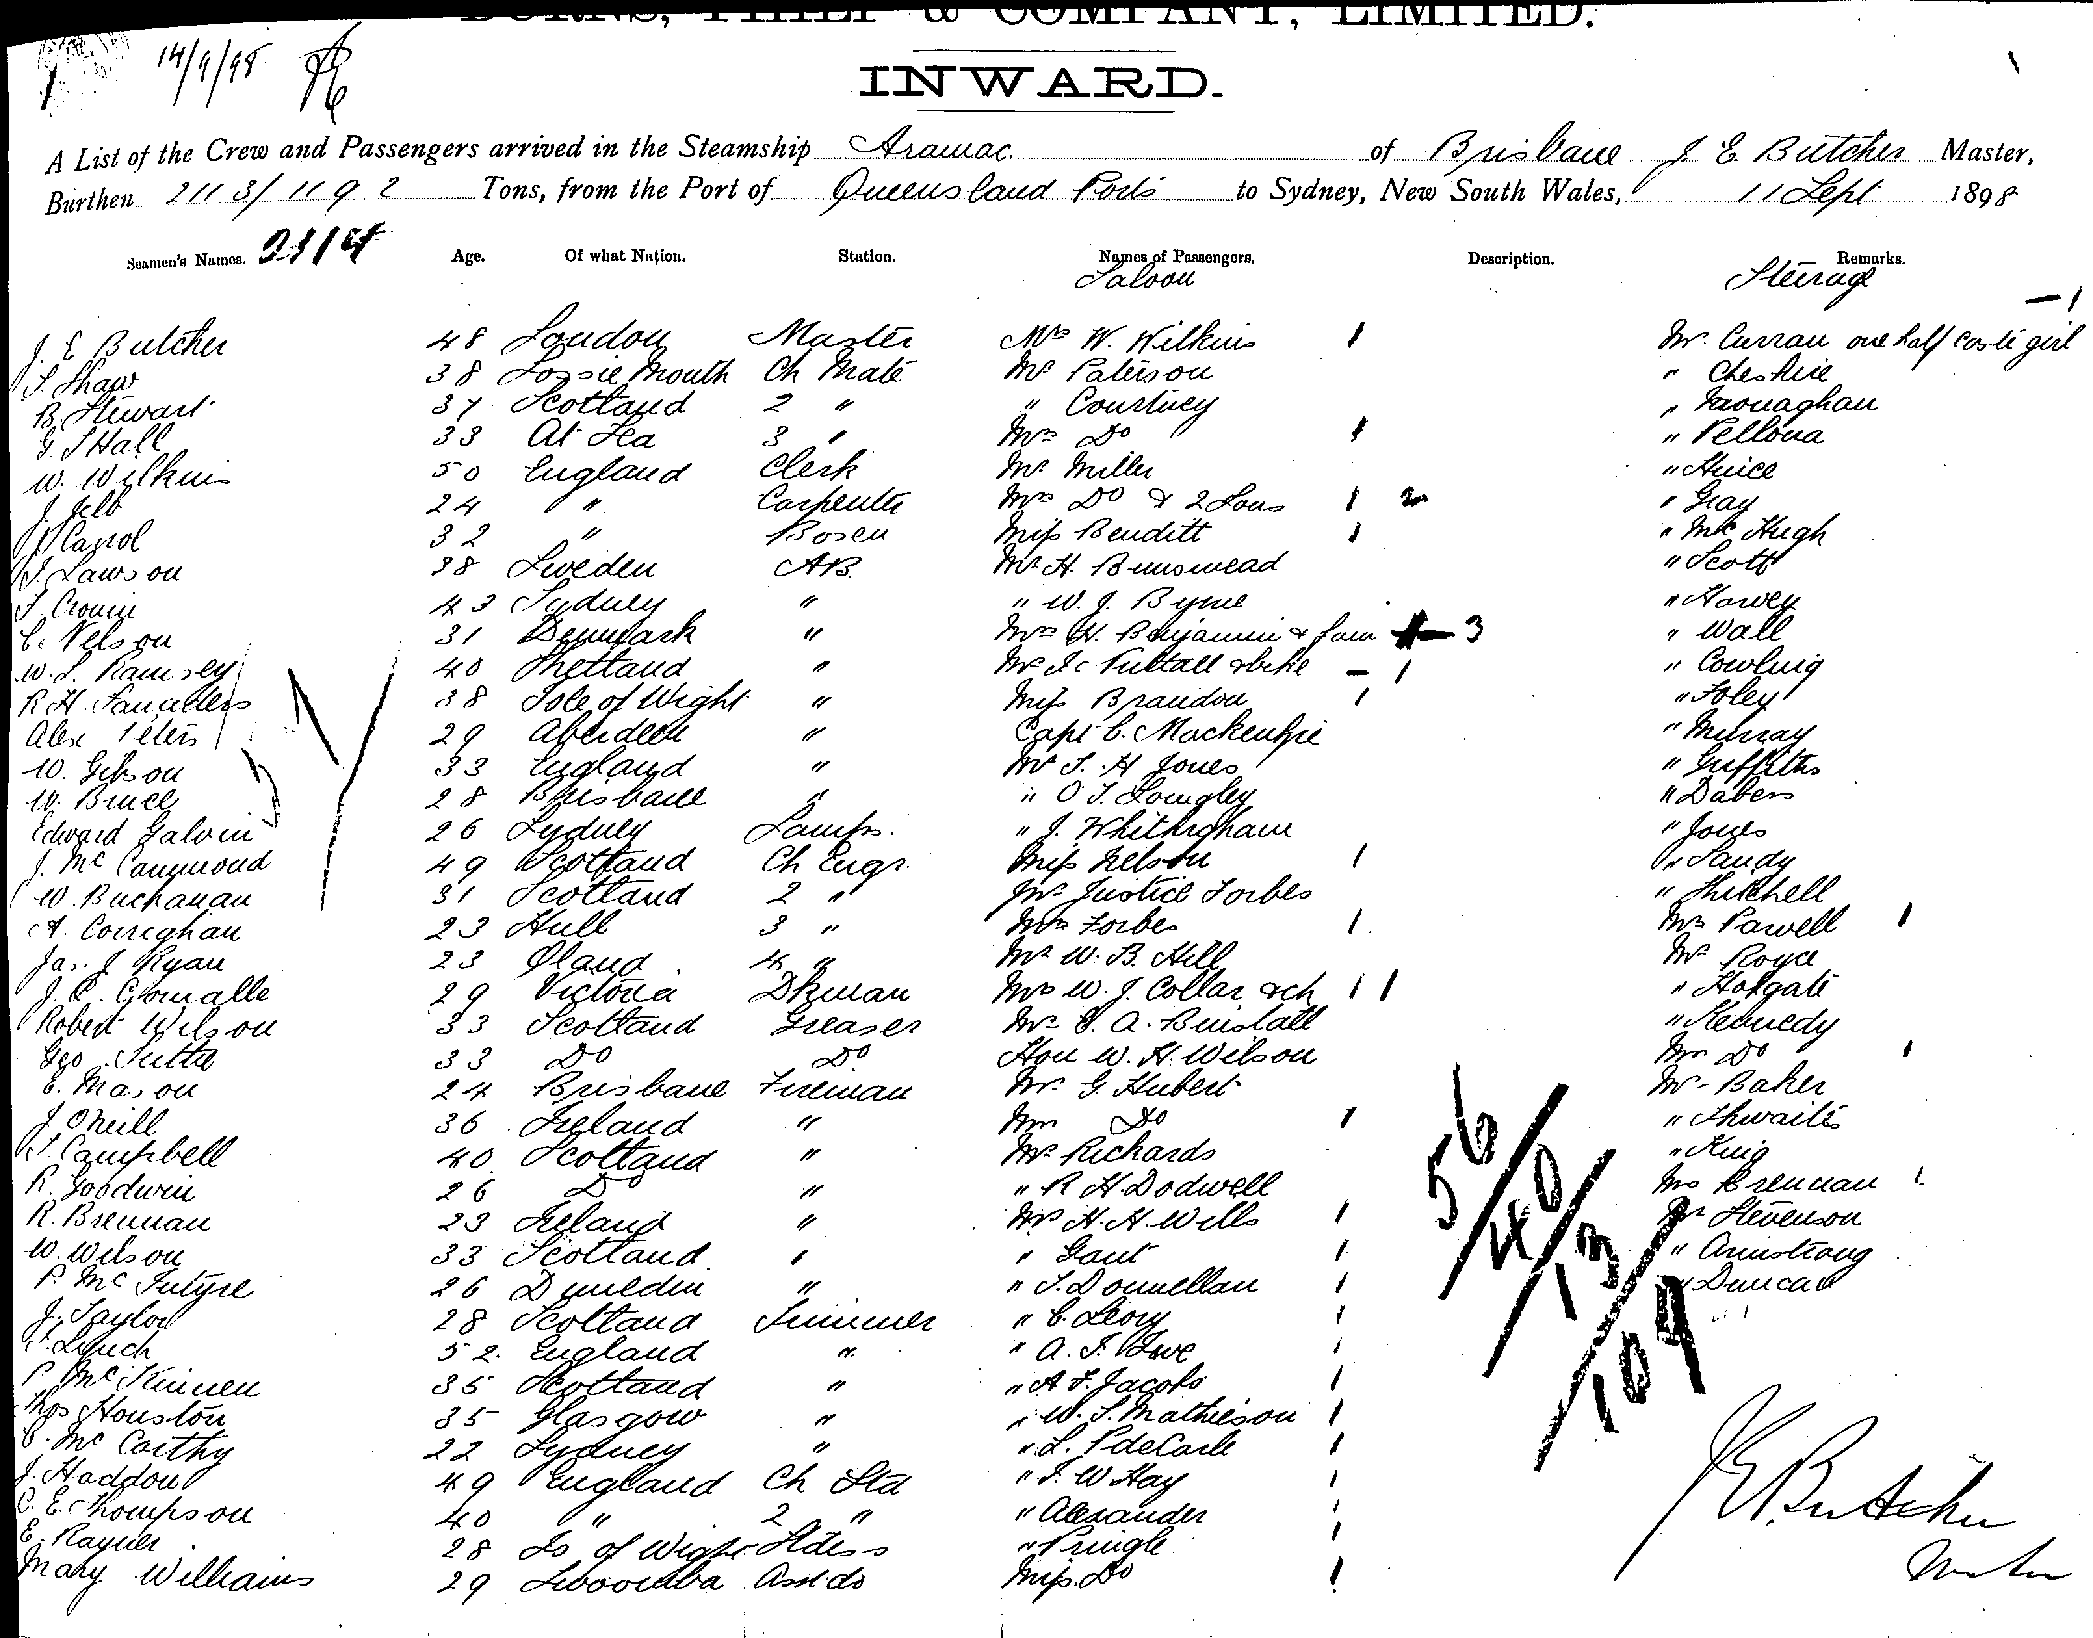 BURNS, PHILP & COMPANY, LIMITED.
14/9/98
INWARD.
A List of the Crew and Passengers arrived in the Steamship Aramac of Brisbane J E Butcher Master,
Burthen 2113/1192 Tons, from the Port of Queensland Ports to Sydney, New South Wales, 11 Sept 1898
Seamen's Names. Age. Of what Nation. Station. Names of Passengers. Description. Remarks.
Saloon Steerage
— 1
J. E Butcher 48 London Master Mrs W. Wilkins 1 Mr. Curran one half caste girl
T. Shaw 38 Lossie Mouth Ch Mate Mr Paterson " Cheshire
B. Stewart 37 Scotland 2 " " Courtney " Monaghan
G. S Hall 33 At Sea 3 " Mrs Do 1 " Pellona
W. Wilkins 50 England Clerk Mr Miller "
24 " Carpenter Mrs Do & 2 Sons 1 2 " Gray
32 " Bosen Miss Benditt 1 " Mc Hugh
J. Lawson 38 Sweden AB. Mr H. " Scott
T. Cronin 43 Sydney " " W. J. Byrne " Howey
C. Nelson 31 Denmark " Mrs W. Benjamin & fam 3 " Wall
W. S. Ramsey 40 Shetland " Mr Nuttall — 1 " Cowling
R. H. Saunders 38 Isle of Wight " Miss Brandon 1 " Foley
Alex Peters 29 Aberdeen " Capt C. Mackenzie " Murray
W. Gibson 33 England " Mr S. H Jones " Griffiths
W. Bruce 28 Brisbane " " O T. Longley " Dabers
Edward Galvin 26 Sydney Lamps. " J. Whittingham " Jones
J. Mc Cammond 49 Scotland Ch Engr. Miss Nelson 1 " Sandy
W. Buchanan 31 Scotland 2 " Mr Justice Forbes " Mitchell
A. Corrighan 23 Hull 3 " Mrs Forbes 1 Mrs Pawell 1
Jas. J Ryan 23 4 " Mr W. B. Hill Mr Royce
29 Victoria Dkman Mrs W. J. Collar & ch 1 1 " Holgate
Robert Wilson 33 Scotland Greaser Mr C. A. Benstall " Kennedy
Geo. 33 Do Do Hon W. H. Wilson Mrs Do 1
C. Mason 24 Brisbane Fireman Mr. G. Hubert Mr. Baker
J. ONeill 36 Ireland " Mrs Do 1 " Thwaites
T. Campbell 40 Scotland " Mr Richards " King
R. Goodwin 26 Do " " R H Dodwell Mrs Brennan 1
R. Brennan 23 Ireland " Mrs H. H. Wills 1 Mr Stevenson
W. Wilson 33 Scotland " " Gant 1 " Armstrong
P. Mc Intyre 26 Dunedin " " T. Donnellan 1 " Duncan
J. Taylor 28 Scotland Trimmer " C. Leory 1
T. Lynch 52 England " " A. T. 1
P. Mc Kinnen 35 Scotland " " A F. Jacobs 1
Thos Houston 35 Glasgow " " W. S. Mathieson 1
C. Mc Carthy 22 Sydney " " L. P deCarle 1
J. Haddon 49 England Ch Std " T. W Hay 1
C. E. Thompson 40 " 2 " " Alexander 1
E. Rayner 28 Is of Wight Stdess " Pringle 1
Mary Williams 29 Asst do Miss Do 1
56/40/13/109
J E Butcher
Master